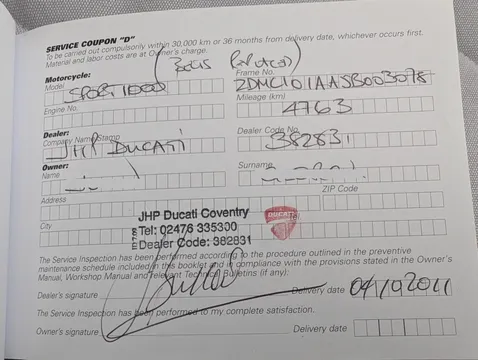 SERVICE COUPON "D"
To be carried out compulsorily within 30.000 km or 36 months from delivery date, whichever occurs first.
Material and labor costs are at Owner's charge.
Motorcycle:
Model
Frame No.
SPORT 1000
ZDMC101AASB003078
Engine No.
Mileage (km)
4763
Dealer:
Company Name/Stamp
Dealer Code No.
JHP DUCATI
382831
Owner:
Name
Surname
Address
ZIP Code
City
JHP Ducati Coventry
Tel: 02476 335300
Dealer Code: 382831
DUCATI
The Service Inspection has been performed according to the procedure outlined in the preventive
maintenance schedule included in this booklet and in compliance with the provisions stated in the Owner's
Manual, Workshop Manual and Relevant Technical Bulletins (if any):
Dealer's signature
Delivery date 04/10/2011
The Service Inspection has been performed to my complete satisfaction.
Owner's signature
Delivery date